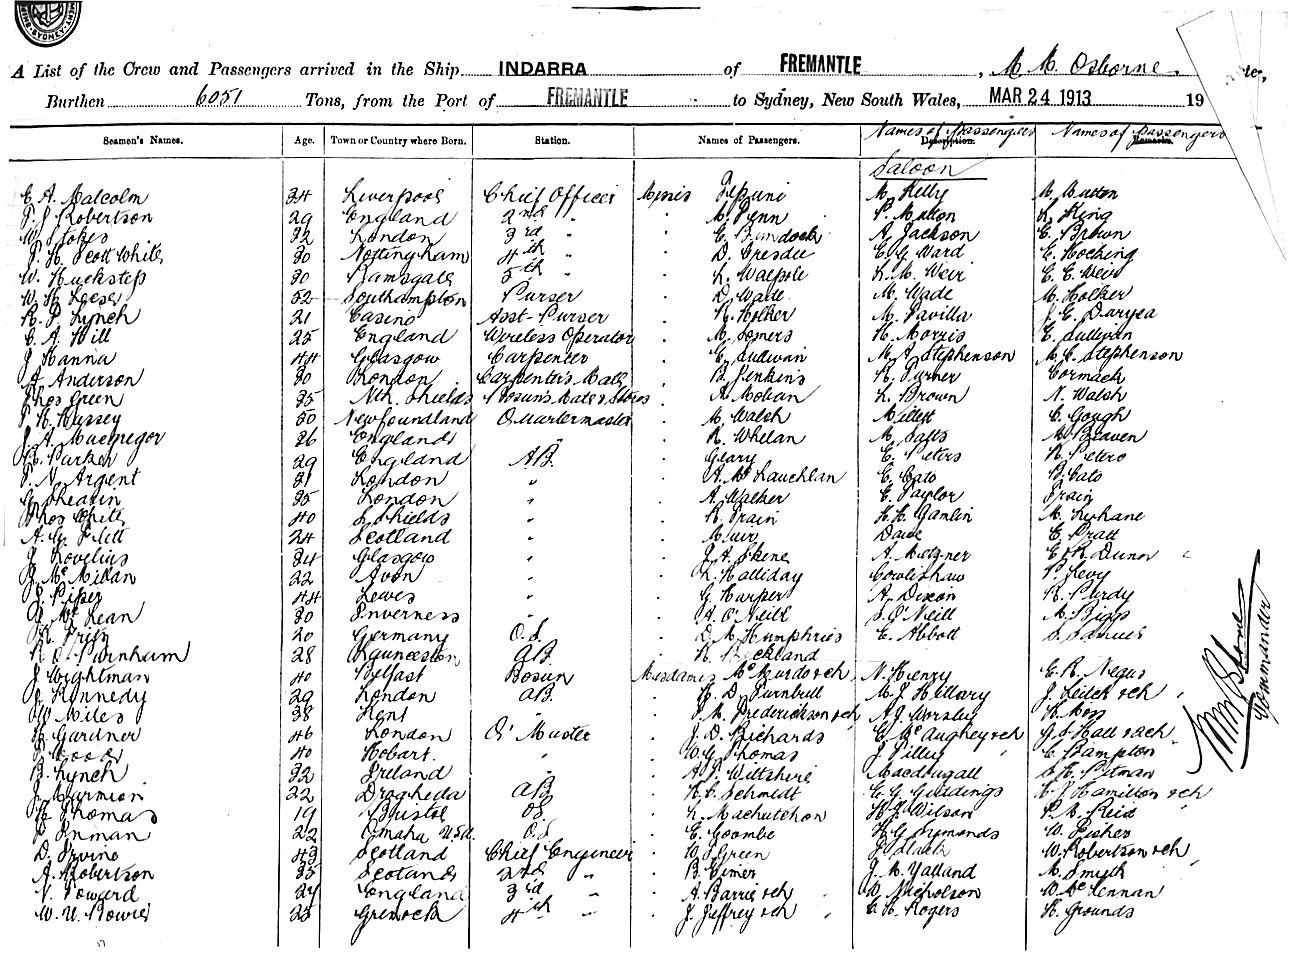 SYDNEY
A List of the Crew and Passengers arrived in the Ship INDARRA of FREMANTLE, M. M. Osborne,
Burthen 6051 Tons, from the Port of FREMANTLE to Sydney, New South Wales, MAR 24 1913 19
Seamen's Names. Age. Town or Country where Born. Station. Names of Passengers. Names of Passengers Description. Names of Passengers Remarks.
Saloon
C. A. Malcolm 34 Liverpool Chief Officer Misses Tepuni M. Kelly M. Mutton
T. J. Robertson 29 England 2nd " M. Penn P. Mutton L. King
W. Stokes 32 London 3rd " C. Burdock A. Jackson C. Brown
T. H. Scott White 30 Nottingham 4th " D. Cresdee E. G. Ward E. Hocking
W. Huckstep 30 Ramsgate 5th " L. Walpole L. M. Weir C. E. Weir
W. H. Leese 52 Southampton Purser D. Wade M. Wade M. Holker
R. P. Lynch 21 Casino Asst- Purser R. Holker M. Pavilla J. E. Daryea
C. A. Hill 25 England Wireless Operator M. Somers H. Morris E. Sullivan
J. Hanna 44 Glasgow Carpenter E. Sullivan M. A. Stephenson M. C. Stephenson
A. Anderson 30 London Carpenter's Mate B. Jenkins R. Turner Cormack
Thos Green 35 Nth. Shields Bosun's Mate & Stores A. Mohan L. Brown N. Walsh
T. H. Hussey 50 Newfoundland Quartermaster M. Walch Millett C. Gough
J. A. Macgregor 26 England " R. Whelan M. Salts M. Beaven
C. Parker 29 England AB. Geary E. Peters R. Peters
T. N. Argent 21 London " A. McLauchlan C. Cato B. Cato
G. Shearin 35 London " A. Walker E. Taylor Prain
Thos White 40 S. Shields " R. Prain H. H. Gamlin M. Lyhane
A. G. Flett 24 Scotland " Muir Dawe C. Pratt
J. Lovelius 34 Glasgow " J. A. Skene A. Metzner E. & R. Dunn
J. McMillan 22 Avon " L. Halliday Cowlishaw P. Levy
J. Piper 44 Lewes " G. Harper A. Dixon R. Purdy
J. McLean 30 Inverness " A. O'Neill S. O'Neill M. Biggs
R. Prien 20 Germany O.S. D. M. Humphries E. Abbott S. Samuel
R. E. Burnham 28 Launceston AB. R. Buckland
J. Wightman 40 Belfast Bosun Mesdames McMurdo & ch N. Henry E. R. Negus
J. Kennedy 29 London AB. H. D. Turnbull M. J. Hillary J. Leich & ch
W. Miles 38 Kent " T. M. Frederickson & ch A. J. Worsley H. Moss
H. Gardner 46 London Qr Master J. D. Richards C. McAughey & ch J. S. Hall & ch
J. Cook 40 Hobart " W. G. Thomas J. Pilley C. Bampton
B. Lynch 32 Ireland " A. J. Wiltshire Macdougall S. H. Pitman
J. Marmion 22 Drogheda AB R. C. Schmidt C. G. Giddings H. J. Hamilton & ch
H. Thomas 19 Bristol OS. L. Machutchon H. J. Wilson P. M. Reid
C. Inman 22 Omaha U.S.A. O.S. E. Coombe H. G. Symonds W. Fisher
D. Irvine 43 Scotland Chief Engineer W. J. Green J. Slack W. Robertson & ch
A. Robertson 35 Scotland 2nd " B. Elmer J. M. Yalland M. Smyth
V. Toward 27 England 3rd " A. Barrie & ch W. Nicholson D. McLennan
W. W. Bowie 23 Greenock 4th " J. Jeffrey & ch C. H. Rogers H. Grounds
Commander